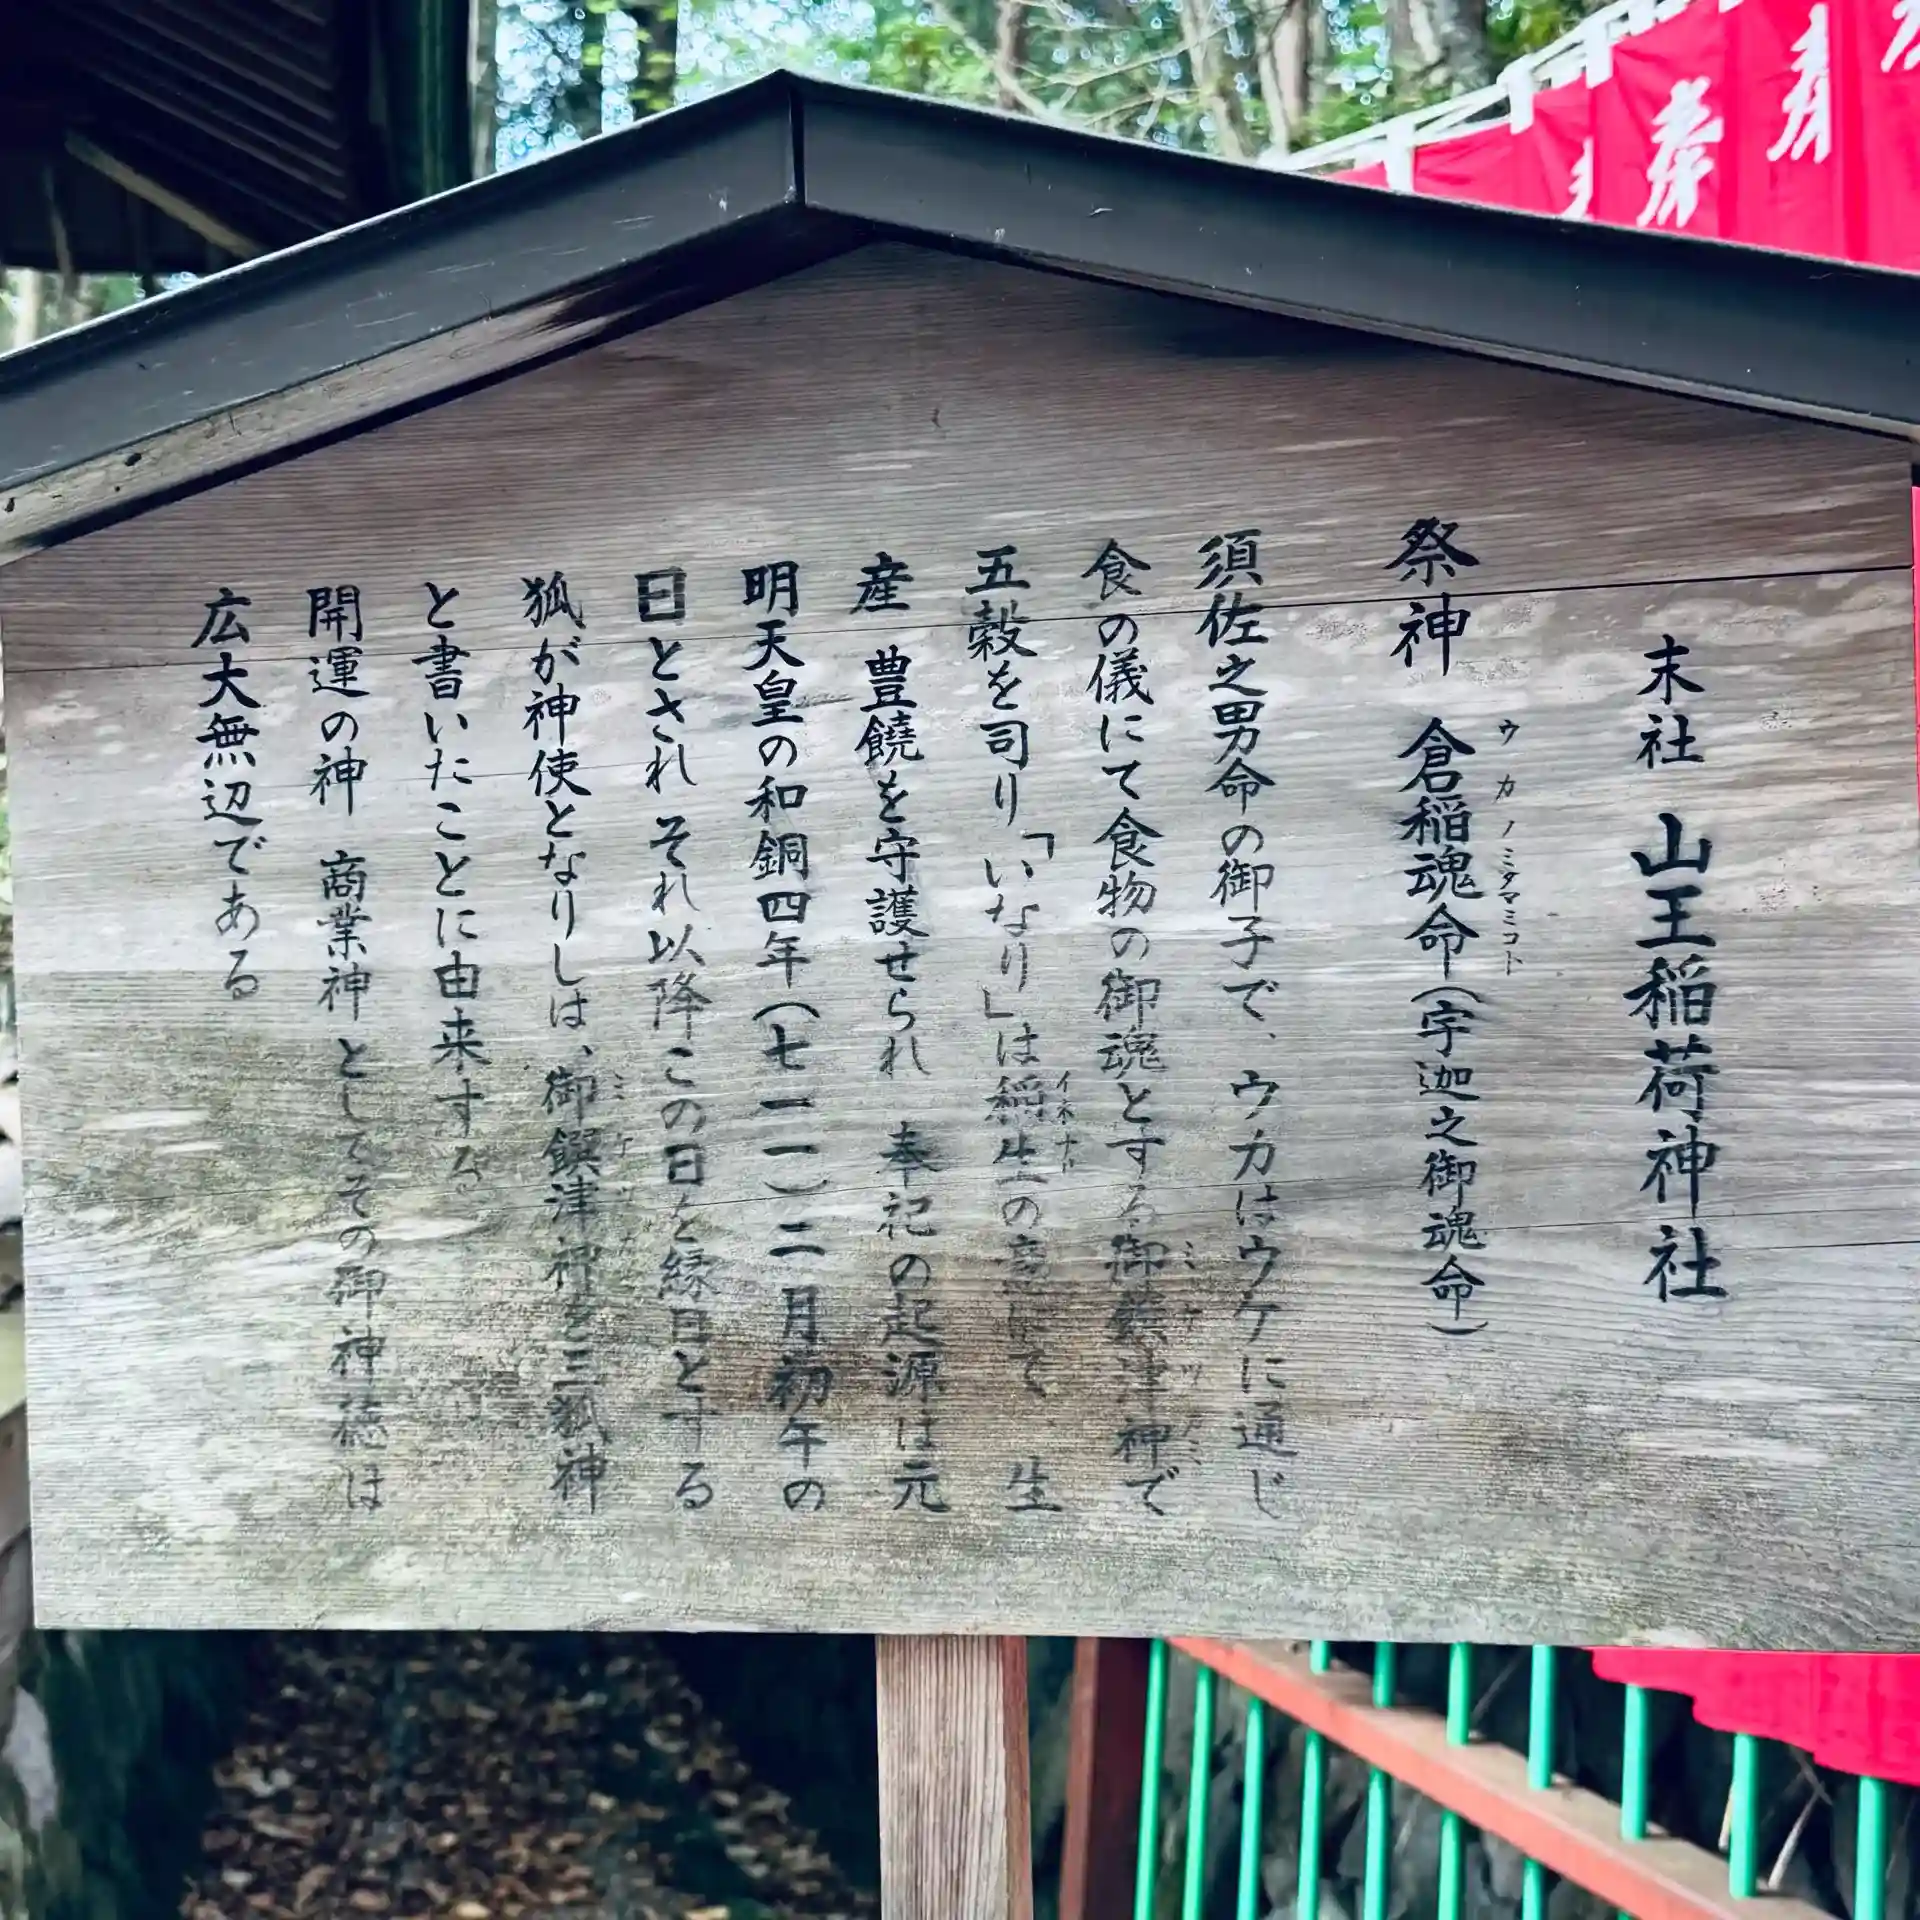 末社 山王稲荷神社
祭神 倉稲魂命(宇迦之御魂命)
ウカノミタマミコト
須佐之男命の御子で、ウカはウケに通じ
食の儀にて食物の御魂とする御饌津神で
ミケツカミ
五穀を司り「いなり」は稲生の意にて 生
イネナリ
産 豊饒を守護せられ 奉祀の起源は元
明天皇の和銅四年(七一一)二月初午の
日とされ それ以降この日を縁日とする
狐が神使となりしは、御饌津神を三狐神
ミケツカミ
と書いたことに由来する
開運の神 商業神としてその御神徳は
広大無辺である
奉
奉